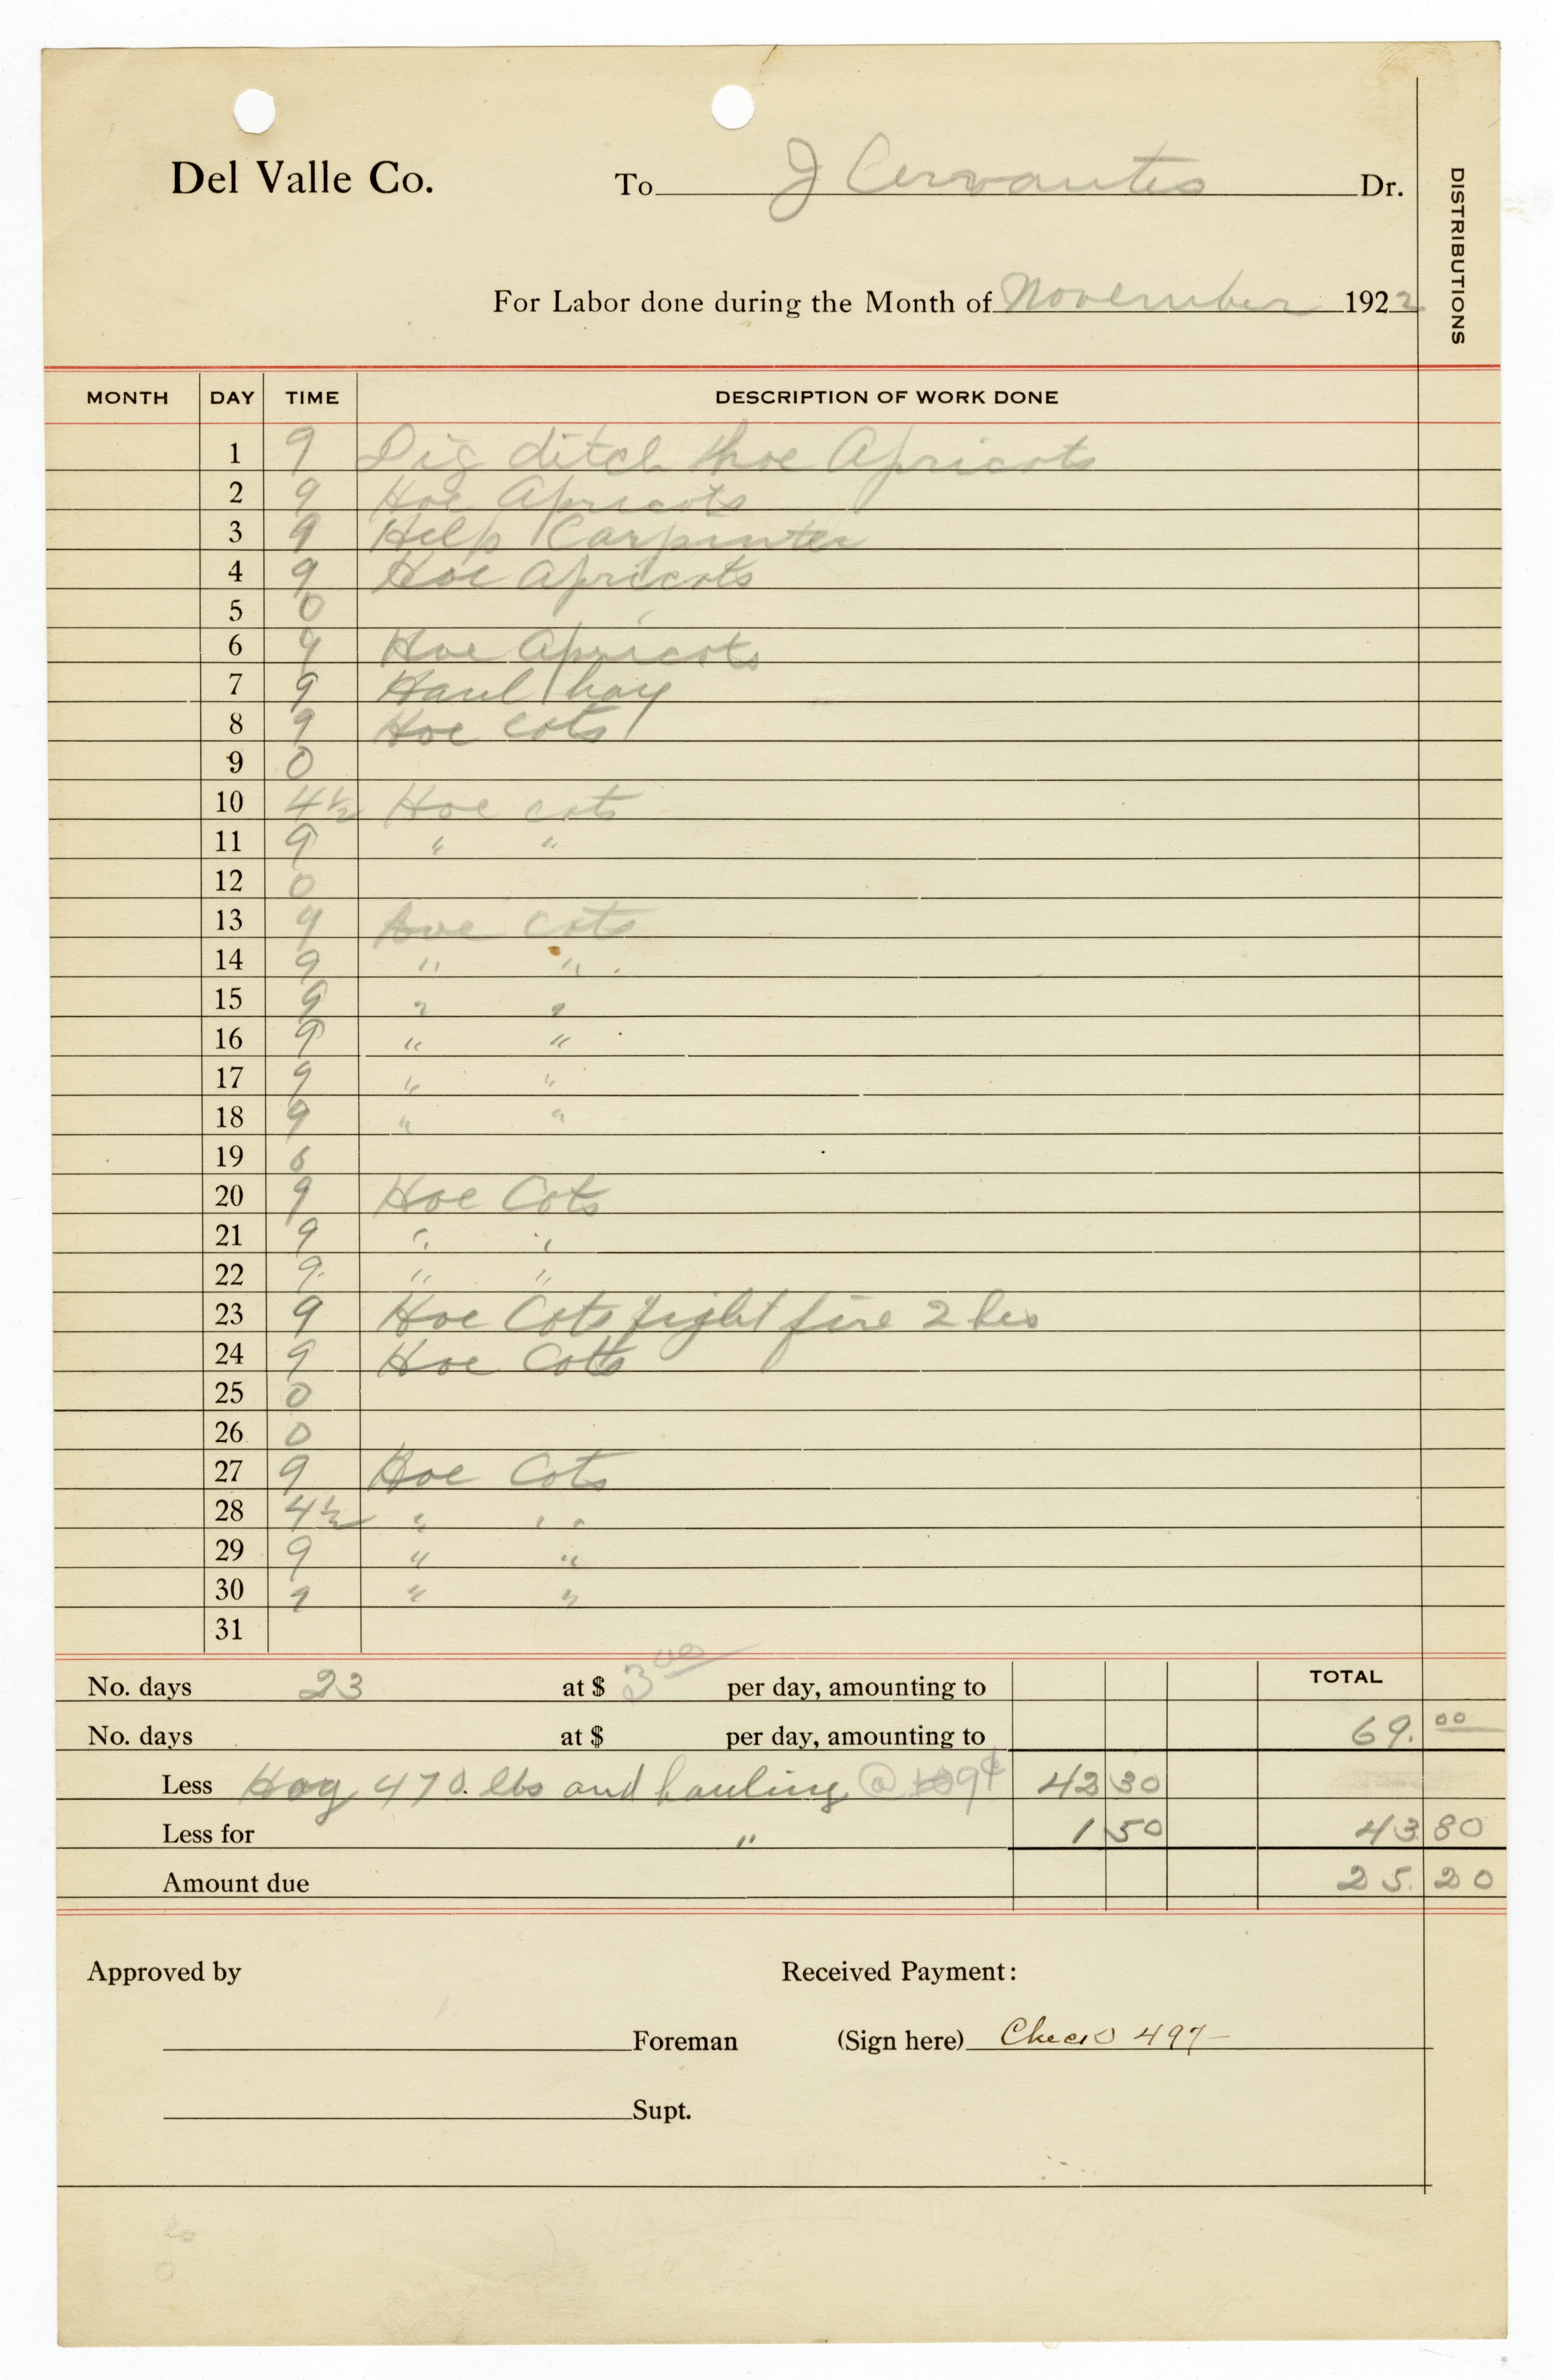 Del Valle Co. To J Cervantes Dr.
DISTRIBUTIONS
For Labor done during the Month of November 1922
MONTH DAY TIME DESCRIPTION OF WORK DONE
1 9 Dig ditch & hoe Apricots
2 9 Hoe Apricots
3 9 Help Carpinter
4 9 Hoe apricots
5 0
6 9 Hoe Apricots
7 9 Haul hay
8 9 Hoe cots
9 0
10 4½ Hoe cots
11 9 " "
12 0
13 9 Hoe Cots
14 9 " "
15 9 " "
16 9 " "
17 9 " "
18 9 " "
19 0
20 9 Hoe Cots
21 9 " "
22 9 " "
23 9 Hoe Cots fight fire 2 hrs
24 9 Hoe Cots
25 0
26 0
27 9 Hoe Cots
28 4½ " "
29 9 " "
30 9 " "
31
No. days 23 at $ 3 per day, amounting to TOTAL
No. days at $ per day, amounting to 69.00
Less Hog 470 lbs and hauling @ 9¢ 42 30
Less for " 1 50 43 80
Amount due 25.20
Approved by Received Payment:
Foreman (Sign here) Check 497
Supt.